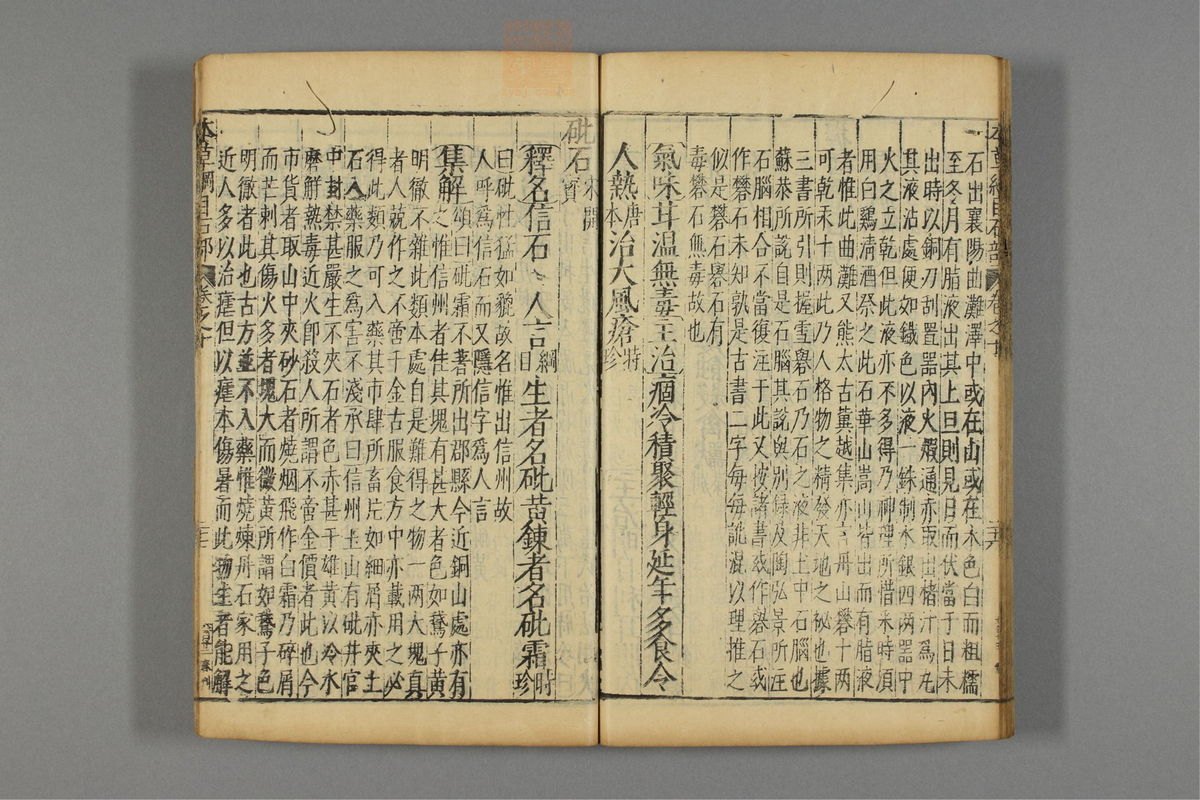 石出襄陽曲灘澤中或在山或在水色白而粗糯
至冬月有脂液出其上旦則見日而伏當于日未
出時以銅刀刮置器內火煅通赤取出楮汁為丸
其液沾處便如鐵色以液一銖制水銀四兩器中
火之立乾但此液亦不多得乃神理所惜采時須
用白鷄清酒祭之此石華山嵩山皆出而有脂液
者惟此曲灘又熊太古冀越集亦言丹山礬十兩
可乾汞十兩此乃人格物之精發天地之祕也據
三書所引則握雪礜石乃石之液非土中石腦也
蘇恭所說自是石腦其說與別錄及陶弘景所注
石腦相合不當復注于此又按諸書或作礜石或
作礬石未知孰是古書二字每每訛混以理推之
似是礬石礜石有
毒礬石無毒故也
氣味甘溫無毒主治痼冷積聚輕身延年多食令
人熱唐本治大風瘡時珍
砒石宋開寶
釋名信石人言綱目生者名砒黃鍊者名砒霜時珍
曰砒性猛如貔故名惟出信州故
人呼為信石而又隱信字為人言
集解頌曰砒霜不著所出郡縣今近銅山處亦有
之惟信州者佳其塊有甚大者色如鵞子黃
明徹不雜此類本處自是難得之物一兩大塊真
者人競作之不啻千金古服食方中亦載用之必
得此類乃可入藥其市肆所畜片如細屑亦夾土
石入藥服之為害不淺承曰信州玉山有砒井官
中封禁甚嚴生不夾石者色赤甚于雄黃以冷水
磨解熱毒近火即殺人所謂不啻金價者此也今
市貨者取山中夾砂石者燒烟飛作白霜乃碎屑
而芒刺其傷火多者塊大而微黃所謂如鵞子色
明徹者此也古方並不入藥惟燒煉丹石家用之
近人多以治瘧但以瘧本傷暑而此物生者能解
本草綱目石部 卷之十